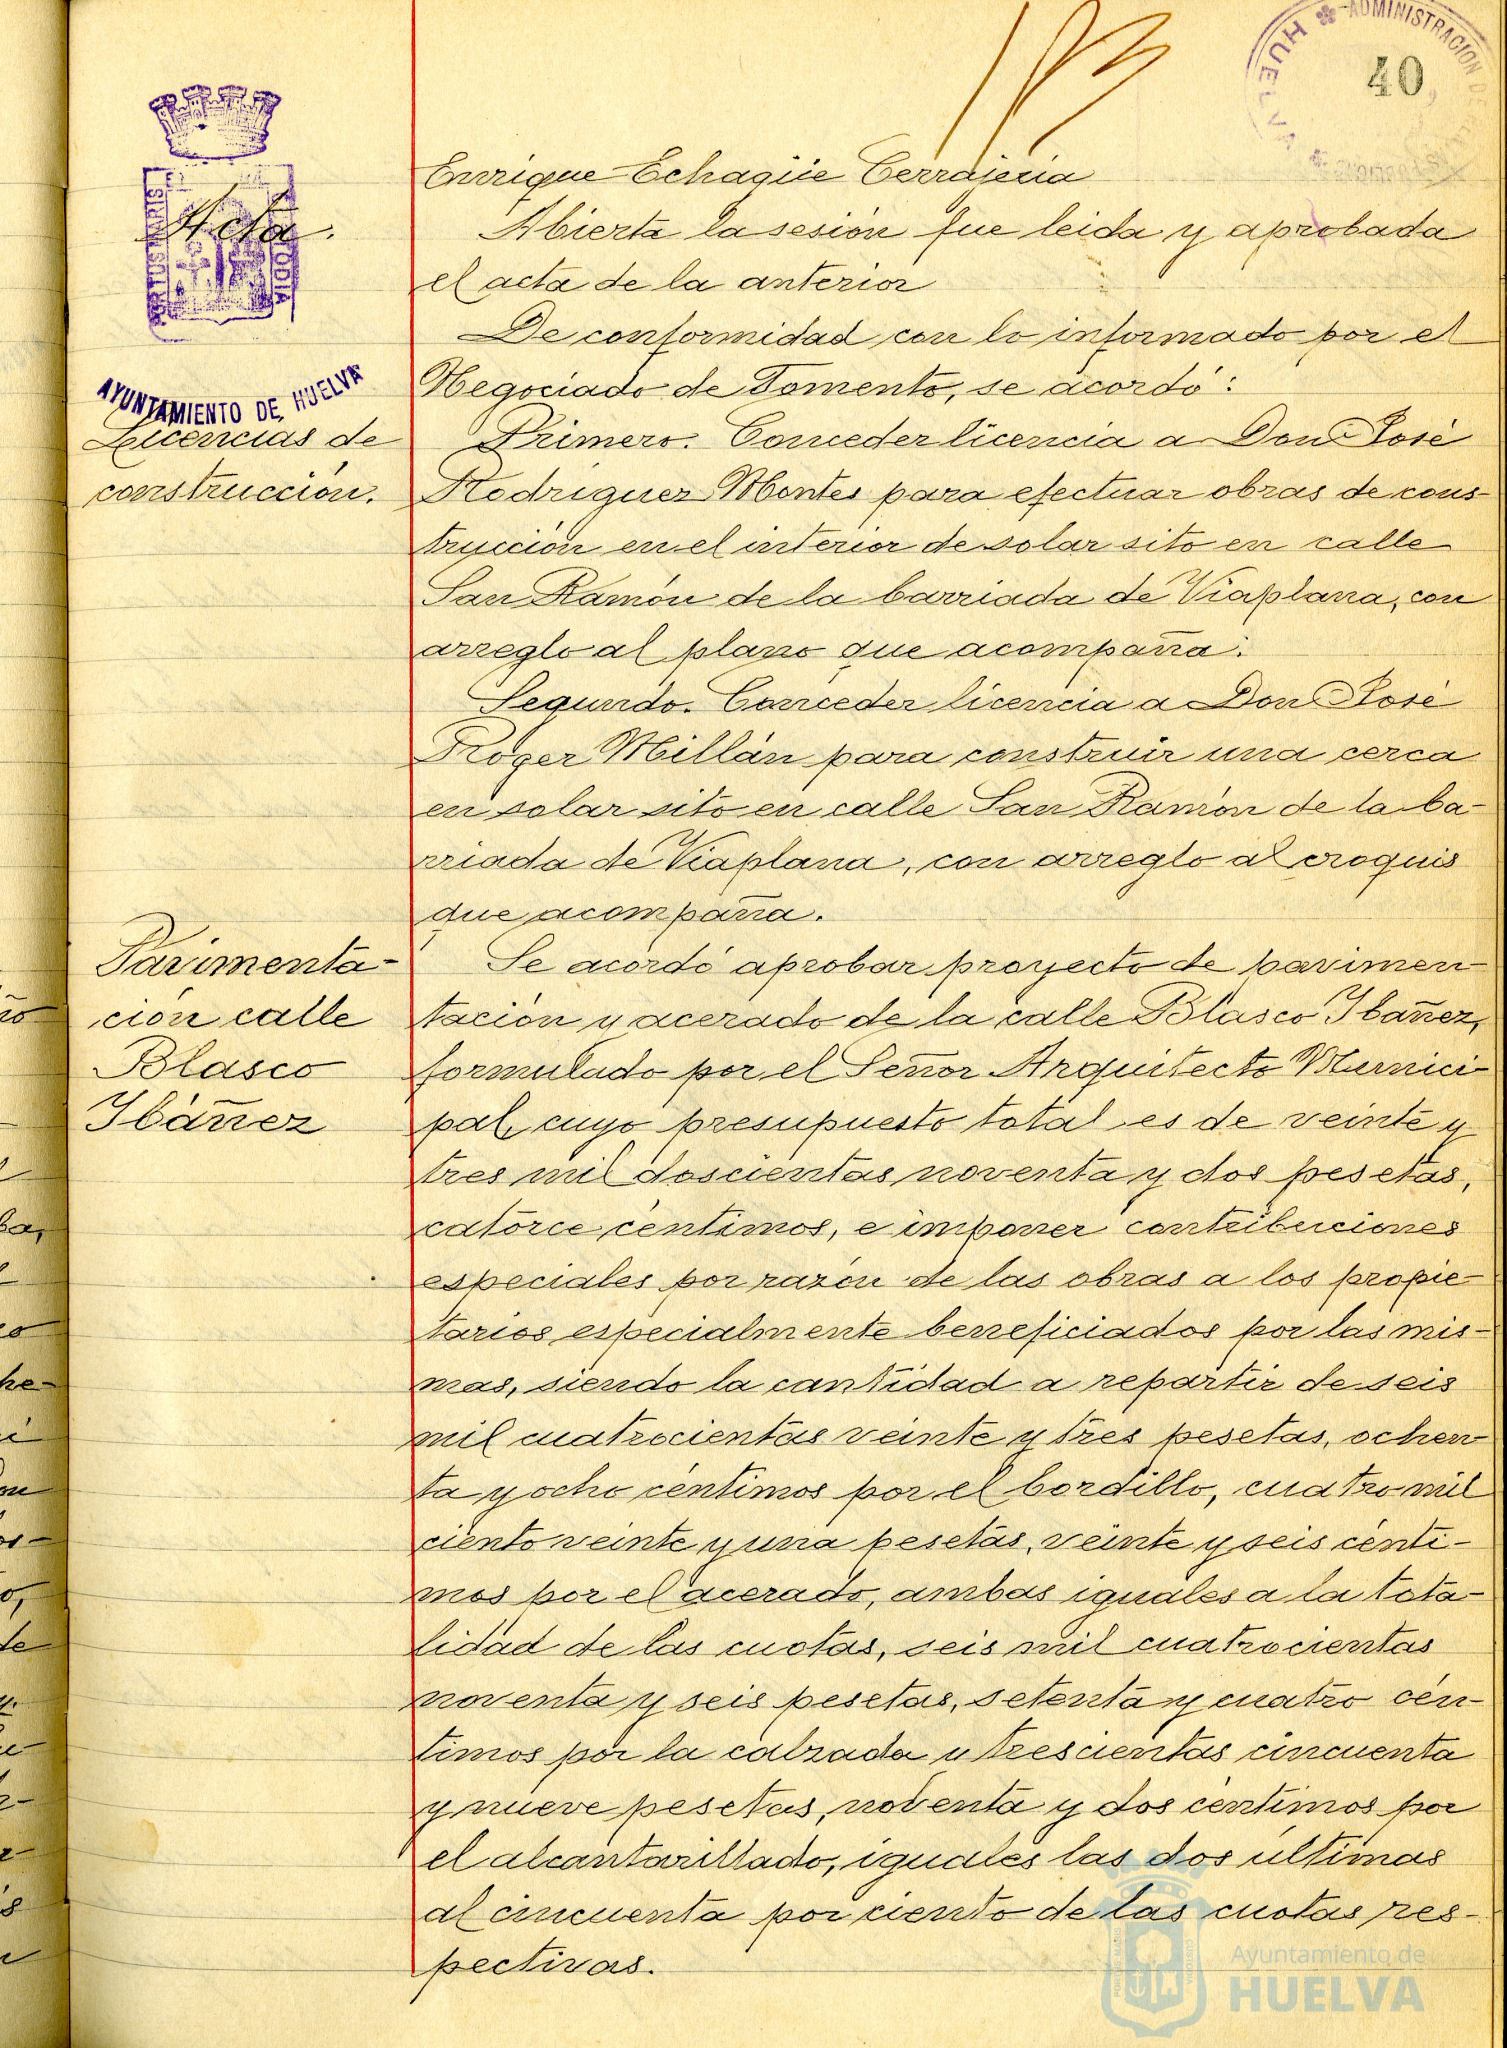 40
ADMINISTRACION DE
HUELVA
Enrique Echagüe Cerrajería
Acta.
Abierta la sesión fue leida y aprobada
el acta de la anterior
De conformidad con lo informado por el
Negociado de Fomento, se acordó:
AYUNTAMIENTO DE HUELVA
Licencias de
construcción.
Primero. Conceder licencia a Don José
Rodriguez Montes para efectuar obras de cons-
trucción en el interior de solar sito en calle
San Ramón de la barriada de Viaplana, con
arreglo al plano que acompaña.
Segundo. Conceder licencia a Don José
Roger Millán para construir una cerca
en solar sito en calle San Ramón de la ba-
rriada de Viaplana, con arreglo al croquis
que acompaña.
Pavimenta-
ción calle
Blasco
Ibáñez
Se acordó aprobar proyecto de pavimen-
tación y acerado de la calle Blasco Ibañez,
formulado por el Señor Arquitecto Munici-
pal, cuyo presupuesto total es de veinte y
tres mil doscientas noventa y dos pesetas,
catorce céntimos, e imponer contribuciones
especiales por razón de las obras a los propie-
tarios especialmente beneficiados por las mis-
mas, siendo la cantidad a repartir de seis
mil cuatrocientas veinte y tres pesetas, ochen-
ta y ocho céntimos por el bordillo, cuatro mil
ciento veinte y una pesetas, veinte y seis cénti-
mos por el acerado, ambas iguales a la tota-
lidad de las cuotas, seis mil cuatrocientas
noventa y seis pesetas, setenta y cuatro cén-
timos por la calzada y trescientas cincuenta
y nueve pesetas, noventa y dos céntimos por
el alcantarillado, iguales las dos últimas
al cincuenta por ciento de las cuotas res-
pectivas.
Ayuntamiento de
HUELVA